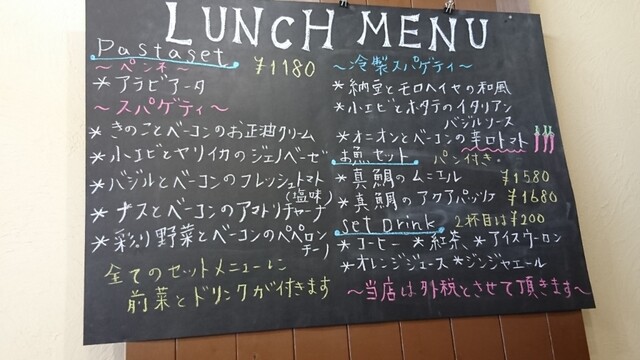 LUNCH MENU
Pastaset
〜ペンネ〜 ¥1180
*アラビアータ
〜スパゲティ〜
*きのことベーコンのお正油クリーム
*小エビとヤリイカのジェノベーゼ
*バジルとベーコンのフレッシュトマト
(塩味)
*ナスとベーコンのアマトリチャーナ
*彩り野菜とベーコンのペペロン
チーノ
全てのセットメニューに
前菜とドリンクが付きます
〜冷製スパゲティ〜
*納豆とモロヘイヤの和風
*小エビとホタテのイタリアン
バジルソース
*オニオンとベーコンの辛口トマト
お魚セット パン付き。
*真鯛のムニエル ¥1580
*真鯛のアクアパッツァ ¥1680
Set Drink 2杯目は¥200
*コーヒー *紅茶、*アイスウーロン
*オレンジジュース *ジンジャエール
〜当店は外税とさせて頂きます〜